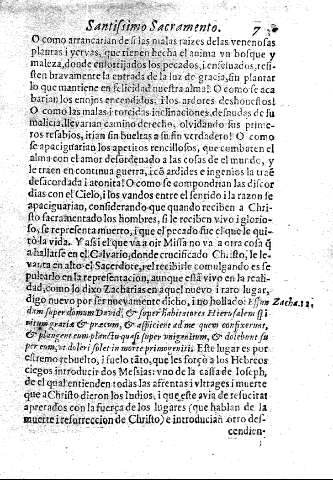 Santissimo Sacramento. 7
O como arrancarian de si las malas raizes de las venenosas
plantas i yervas, que tienen hecha el anima vn bosque y
maleza, donde enfortijados los pecados, i enseluados, resi-
sten bravamente la entrada de la luz de gracia, sin plantar
lo que mantiene en felicidad nuestra alma! O como se aca
barian los enojos encendidos, i los ardores deshonestos!
O como las malas i torcidas inclinaciones, desnudas de su
malicia, llevarian camino derecho, olvidando sus prime-
ros resabios, irian sin bueltas a su fin verdadero! O como
se apaciguarian los apetitos rencillosos, que combaten el
alma con el amor desordenado a las cosas de el mundo, y
le traen en continua guerra, i cõ ardides e ingenios la traẽ
desacordada i atonita! O como se compondrian las discor
dias con el Cielo, i los vandos entre el sentido i la razon se
apaciguarian, considerando que quando reciben a Chri-
sto sacramentado los hombres, si le reciben vivo i glorio-
so, se representa muerto, i que el pecado fue el que le qui-
tò la vida. Y assi el que va a oir Missa no va a otra cosa q̃
a hallarse en el Calvario, donde crucificado Christo, le le-
vanta en alto el Sacerdote, i el recibirle comulgando es se
pultarlo en la representacion, aunque està vivo en la reali-
dad, como lo dixo Zacharias en aquel nuevo i raro lugar,
digo nuevo por ser nuevamente dicho, i no hollado: Effun Zacha. 12,
dam super domum David, & super habitatores Hierusalem spi
ritum gratiæ & precum, & aspicient ad me quem confixerunt,
& plangent eum planctu quasi super vnigenitum, & dolebunt su
per eum, vt doleri solet in morte primogeniti. Este lugar es por
estremo rebuelto, i fuelo tãto, que les forçò a los Hebreos
ciegos introducir dos Mesias: vno de la casa de Ioseph,
de el qual entienden todas las afrentas i vltrages i muerte
que a Christo dieron los Iudios, i que este avia de resucitar
apretados con la fuerça de los lugares (que hablan de la
muerte i resurreccion de Christo) e introducian otro des-
cendien-